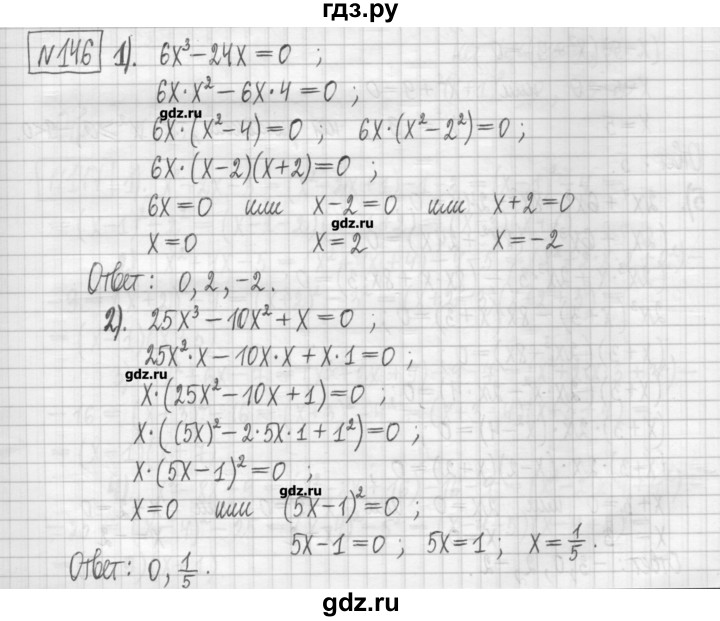 гдз.ру
№146 1). 6x³ − 24x = 0 ;
6x·x² − 6x·4 = 0 ;
gdz.ru
6x·(x² − 4) = 0 ; 6x·(x² − 2²) = 0 ;
6x·(x − 2)(x + 2) = 0 ;
6x = 0 или x − 2 = 0 или x + 2 = 0
gdz.ru
x = 0 x = 2 x = −2
Ответ: 0, 2, −2.
2). 25x³ − 10x² + x = 0 ;
25x²·x − 10x·x + x·1 = 0 ;
gdz.ru
x·(25x² − 10x + 1) = 0 ;
x·((5x)² − 2·5x·1 + 1²) = 0 ;
x·(5x − 1)² = 0 ;
gdz.ru
x = 0 или (5x − 1)² = 0 ;
5x − 1 = 0 ; 5x = 1 ; x = 1/5.
Ответ: 0, 1/5.
gdz.ru